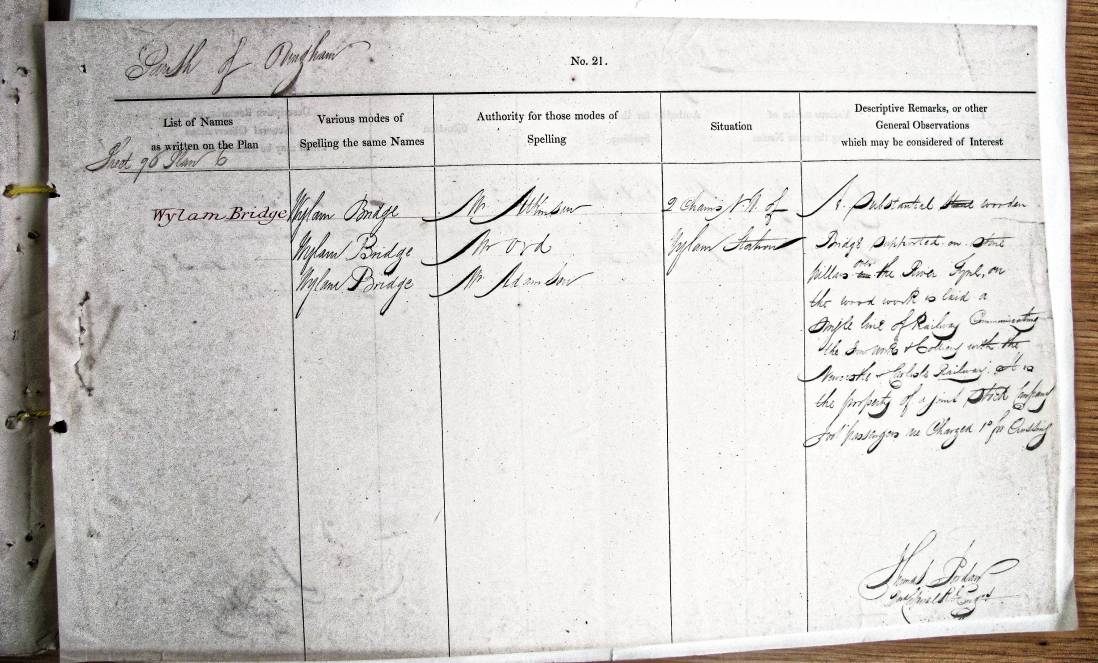 Parish of Ovingham
No. 21.
List of Names
as written on the Plan
Various modes of
Spelling the same Names
Authority for those modes of
Spelling
Situation
Descriptive Remarks, or other
General Observations
which may be considered of Interest
Sheet 96 Plan 6
Wylam Bridge
Wylam Bridge
Wylam Bridge
Wylam Bridge
Mr Atkinson
Mr Ord
Mr Adamson
2 Chains N.W. of
Wylam Station
A substantial stone wooden
Bridge supported on stone
pillars over the River Tyne, on
the wood work is laid a
single line of Railway Communicating
the Iron works & Colliery with the
Newcastle & Carlisle Railway. It is
the property of a joint Stock Company
foot passengers are Charged 1d for Crossing
Thomas Jordan